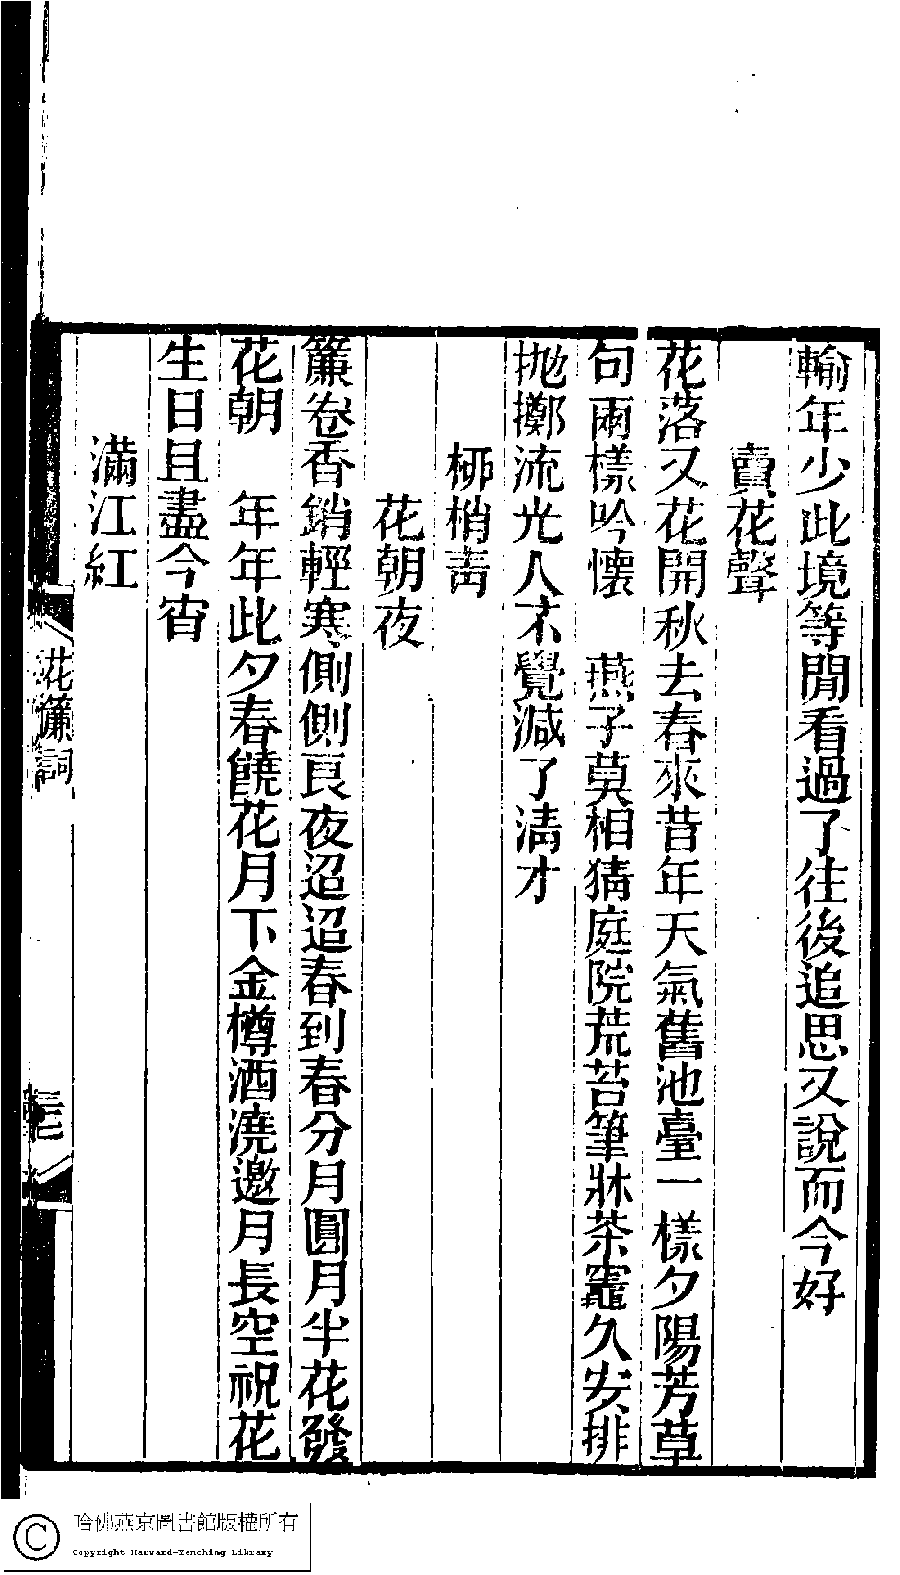 輸年少此境等閒看過了往後追思又說而今好
賣花聲
花落又花開秋去春來昔年天氣舊池臺一樣夕陽芳草
句兩樣吟懷　燕子莫相猜庭院荒苔筆牀茶竈久安排
拋擲流光人不覺減了淸才
柳梢靑
花朝夜
簾卷香銷輕寒側側良夜迢迢春到春分月圓月半花發
花朝　年年此夕春饒花月下金樽酒澆邀月長空祝花
生日且盡今宵
滿江紅
花簾詞
哈佛燕京圖書館版權所有
Copyright Harvard-Yenching Library